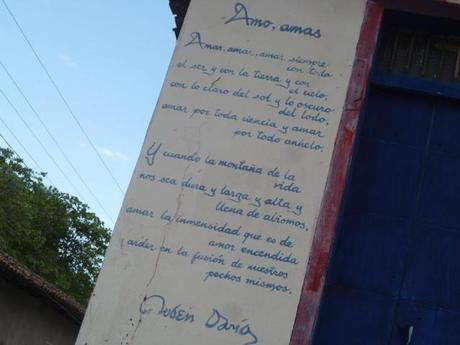 Amo, amas
Amar, amar, amar, siempre
con todo
el ser y con la tierra y con
el cielo,
con lo claro del sol y lo oscuro
del lodo,
amar por toda ciencia y amar
por todo anhelo.
Y cuando la montaña de la
vida
nos sea dura y larga y alta y
llena de abismos,
amar la inmensidad que es de
amor encendida
y arder en la fusión de nuestros
pechos mismos.
Rubén Darío